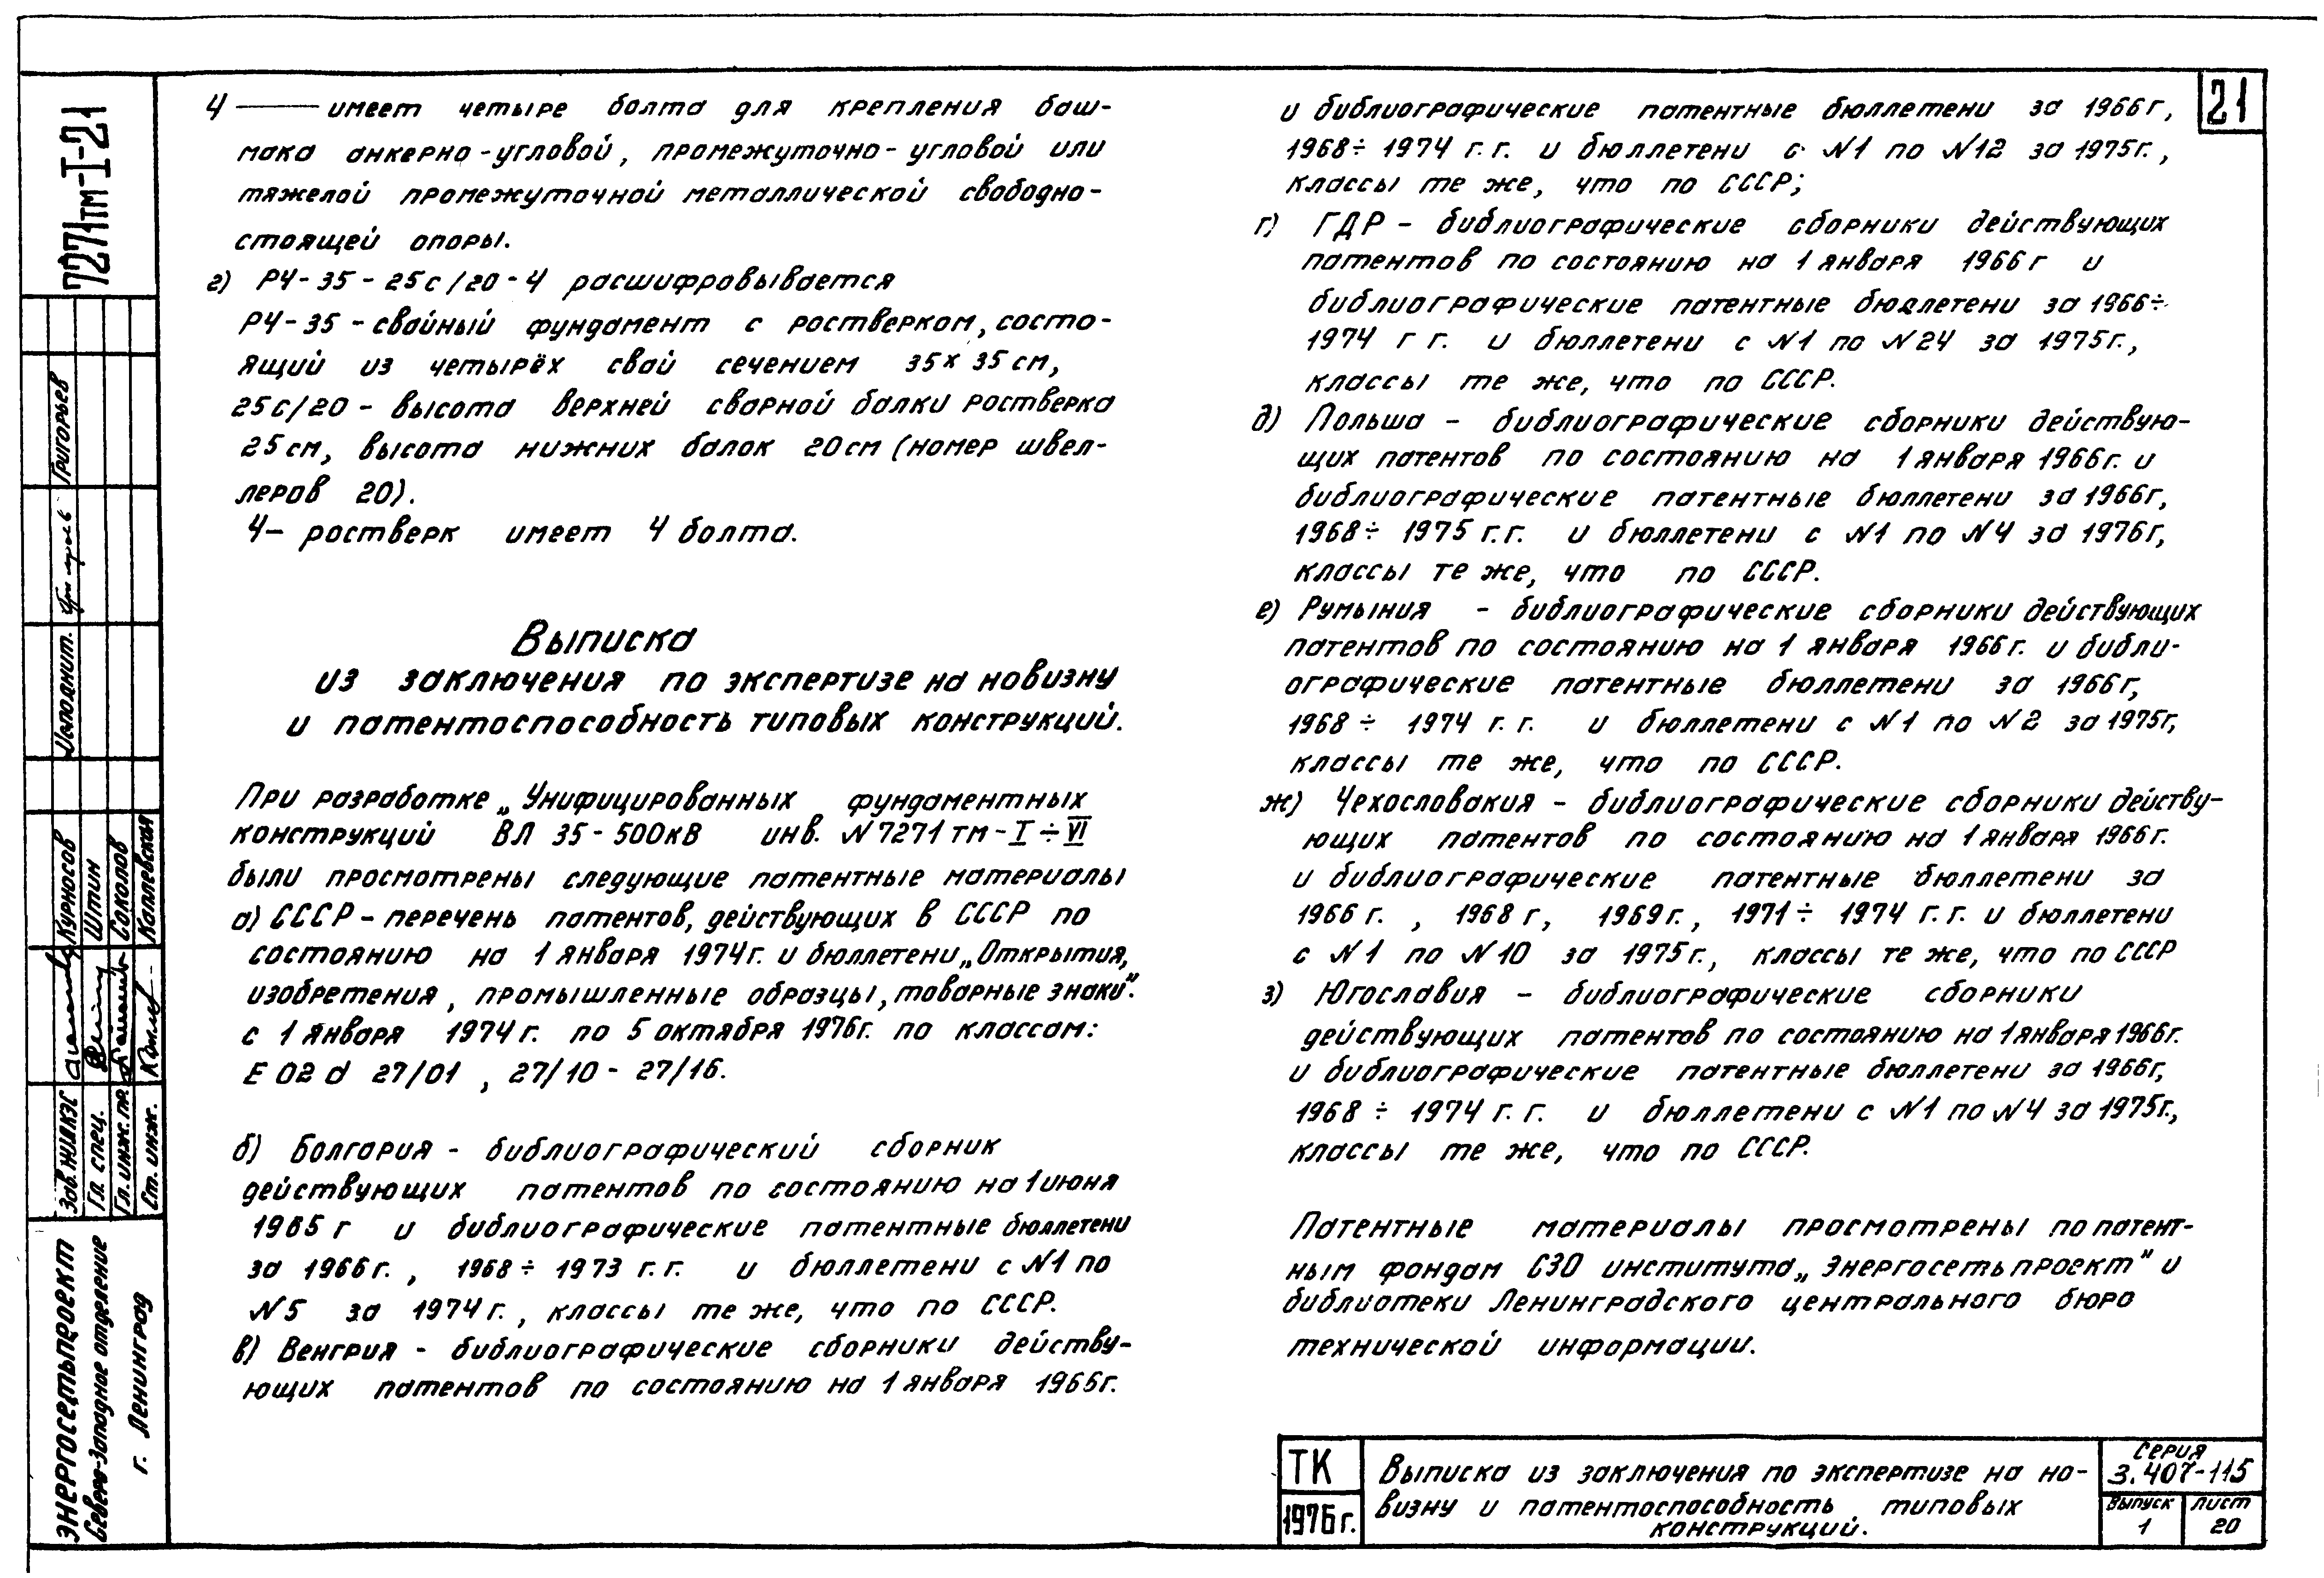 4 ——— имеет четыре болта для крепления баш-
мака анкерно-угловой, промежуточно-угловой или
тяжелой промежуточной металлической свободно-
стоящей опоры.
г) Р4-35-25с/20-4 расшифровывается
Р4-35 - свайный фундамент с ростверком, состо-
ящий из четырёх свай сечением 35х35 см,
25с/20 - высота верхней сварной балки ростверка
25 см, высота нижних балок 20 см (номер швел-
леров 20).
4- ростверк имеет 4 болта.
Выписка
из заключения по экспертизе на новизну
и патентоспособность типовых конструкций.
При разработке „Унифицированных фундаментных
конструкций ВЛ 35-500кВ инв. N 7271 тм-I÷VI
были просмотрены следующие патентные материалы
а) СССР - перечень патентов, действующих в СССР по
состоянию на 1 января 1974г. и бюллетени „Открытия,
изобретения, промышленные образцы, товарные знаки".
с 1 января 1974г. по 5 октября 1976г. по классам:
Е 02 d 27/01 , 27/10 - 27/16.
б) Болгария - библиографический сборник
действующих патентов по состоянию на 1 июня
1965 г и библиографические патентные бюллетени
за 1966г. , 1968÷1973 г.г. и бюллетени с N1 по
N5 за 1974г., классы те же, что по СССР.
в) Венгрия - библиографические сборники действу-
ющих патентов по состоянию на 1 января 1966г.
и библиографические патентные бюллетени за 1966г,
1968÷1974 г.г. и бюллетени с N1 по N12 за 1975г.,
классы те же, что по СССР;
г) ГДР - библиографические сборники действующих
патентов по состоянию на 1 января 1966г и
библиографические патентные бюллетени за 1966÷
1974 г г. и бюллетени с N1 по N24 за 1975г.,
классы те же, что по СССР.
д) Польша - библиографические сборники действую-
щих патентов по состоянию на 1 января 1966г. и
библиографические патентные бюллетени за 1966г,
1968÷1975 г.г. и бюллетени с N1 по N4 за 1976г,
классы те же, что по СССР.
е) Румыния - библиографические сборники действующих
патентов по состоянию на 1 января 1966г. и библи-
ографические патентные бюллетени за 1966г,
1968÷1974 г.г. и бюллетени с N1 по N2 за 1975г,
классы те же, что по СССР.
ж) Чехословакия - библиографические сборники действу-
ющих патентов по состоянию на 1 января 1966г.
и библиографические патентные бюллетени за
1966 г. , 1968 г, 1969г., 1971÷1974 г.г. и бюллетени
с N1 по N10 за 1975г., классы те же, что по СССР
з) Югославия - библиографические сборники
действующих патентов по состоянию на 1 января 1966г.
и библиографические патентные бюллетени за 1966г,
1968÷1974 г.г. и бюллетени с N1 по N4 за 1975г.,
классы те же, что по СССР.
Патентные материалы просмотрены по патент-
ным фондам СЗО института „Энергосетьпроект" и
библиотеки Ленинградского центрального бюро
технической информации.
21
7271тм-I-21
Григорьев
Исполнит.
Курносов
Штин
Соколов
Каплевская
Зав. НИЛКЭС
Гл. спец.
Гл. инж. пр.
Ст. инж.
ЭНЕРГОСЕТЬПРОЕКТ
Северо-Западное отделение
г. Ленинград
ТК
1976г.
Выписка из заключения по экспертизе на но-
визну и патентоспособность типовых
конструкций.
Серия
3.407-115
Выпуск
1
Лист
20